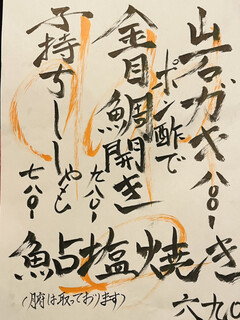 岩ガキ八〇〇
ポン酢で
金目鯛開き
九八〇
子持ちししゃも
七八〇
鮎塩焼き
六九〇
(腸は取っております)